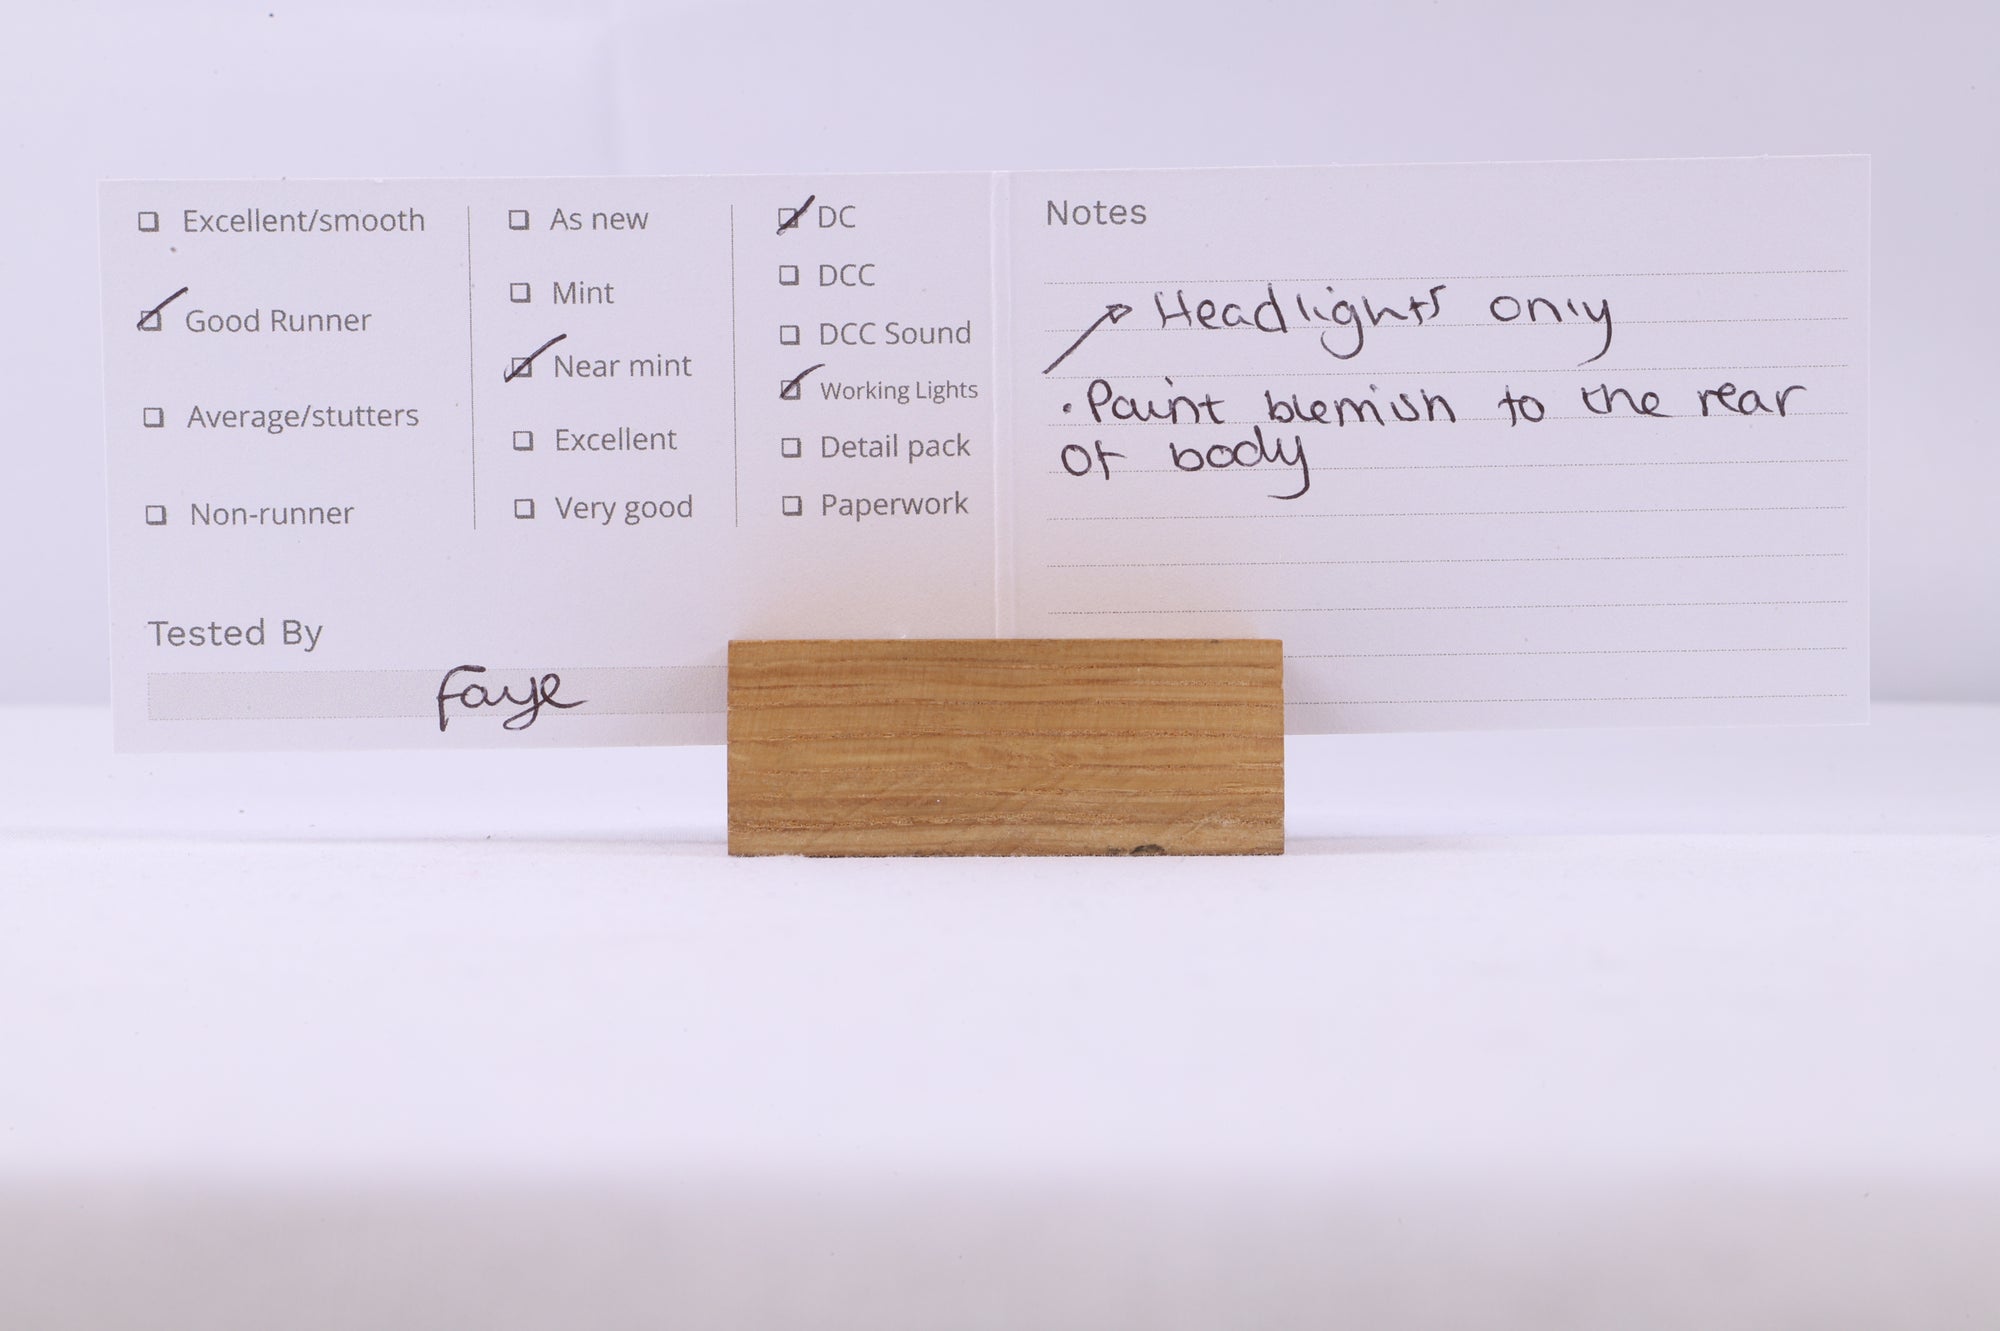 Excellent/smooth
Good Runner
Average/stutters
Non-runner
As new
Mint
Near mint
Excellent
Very good
DC
DCC
DCC Sound
Working Lights
Detail pack
Paperwork
Tested By
Faye
Notes
Headlights only
• Paint blemish to the rear
of body